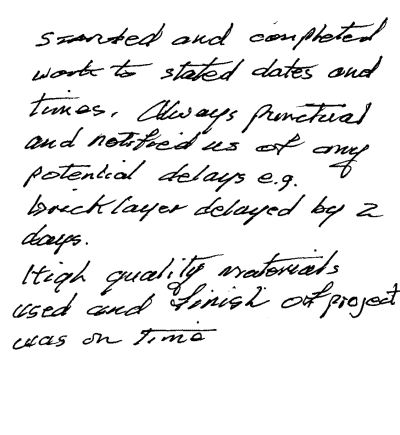 started and completed
work to stated dates and
times. Always punctual
and notified us of any
potential delays e.g.
bricklayer delayed by 2
days.
High quality materials
used and finish of project
was on time